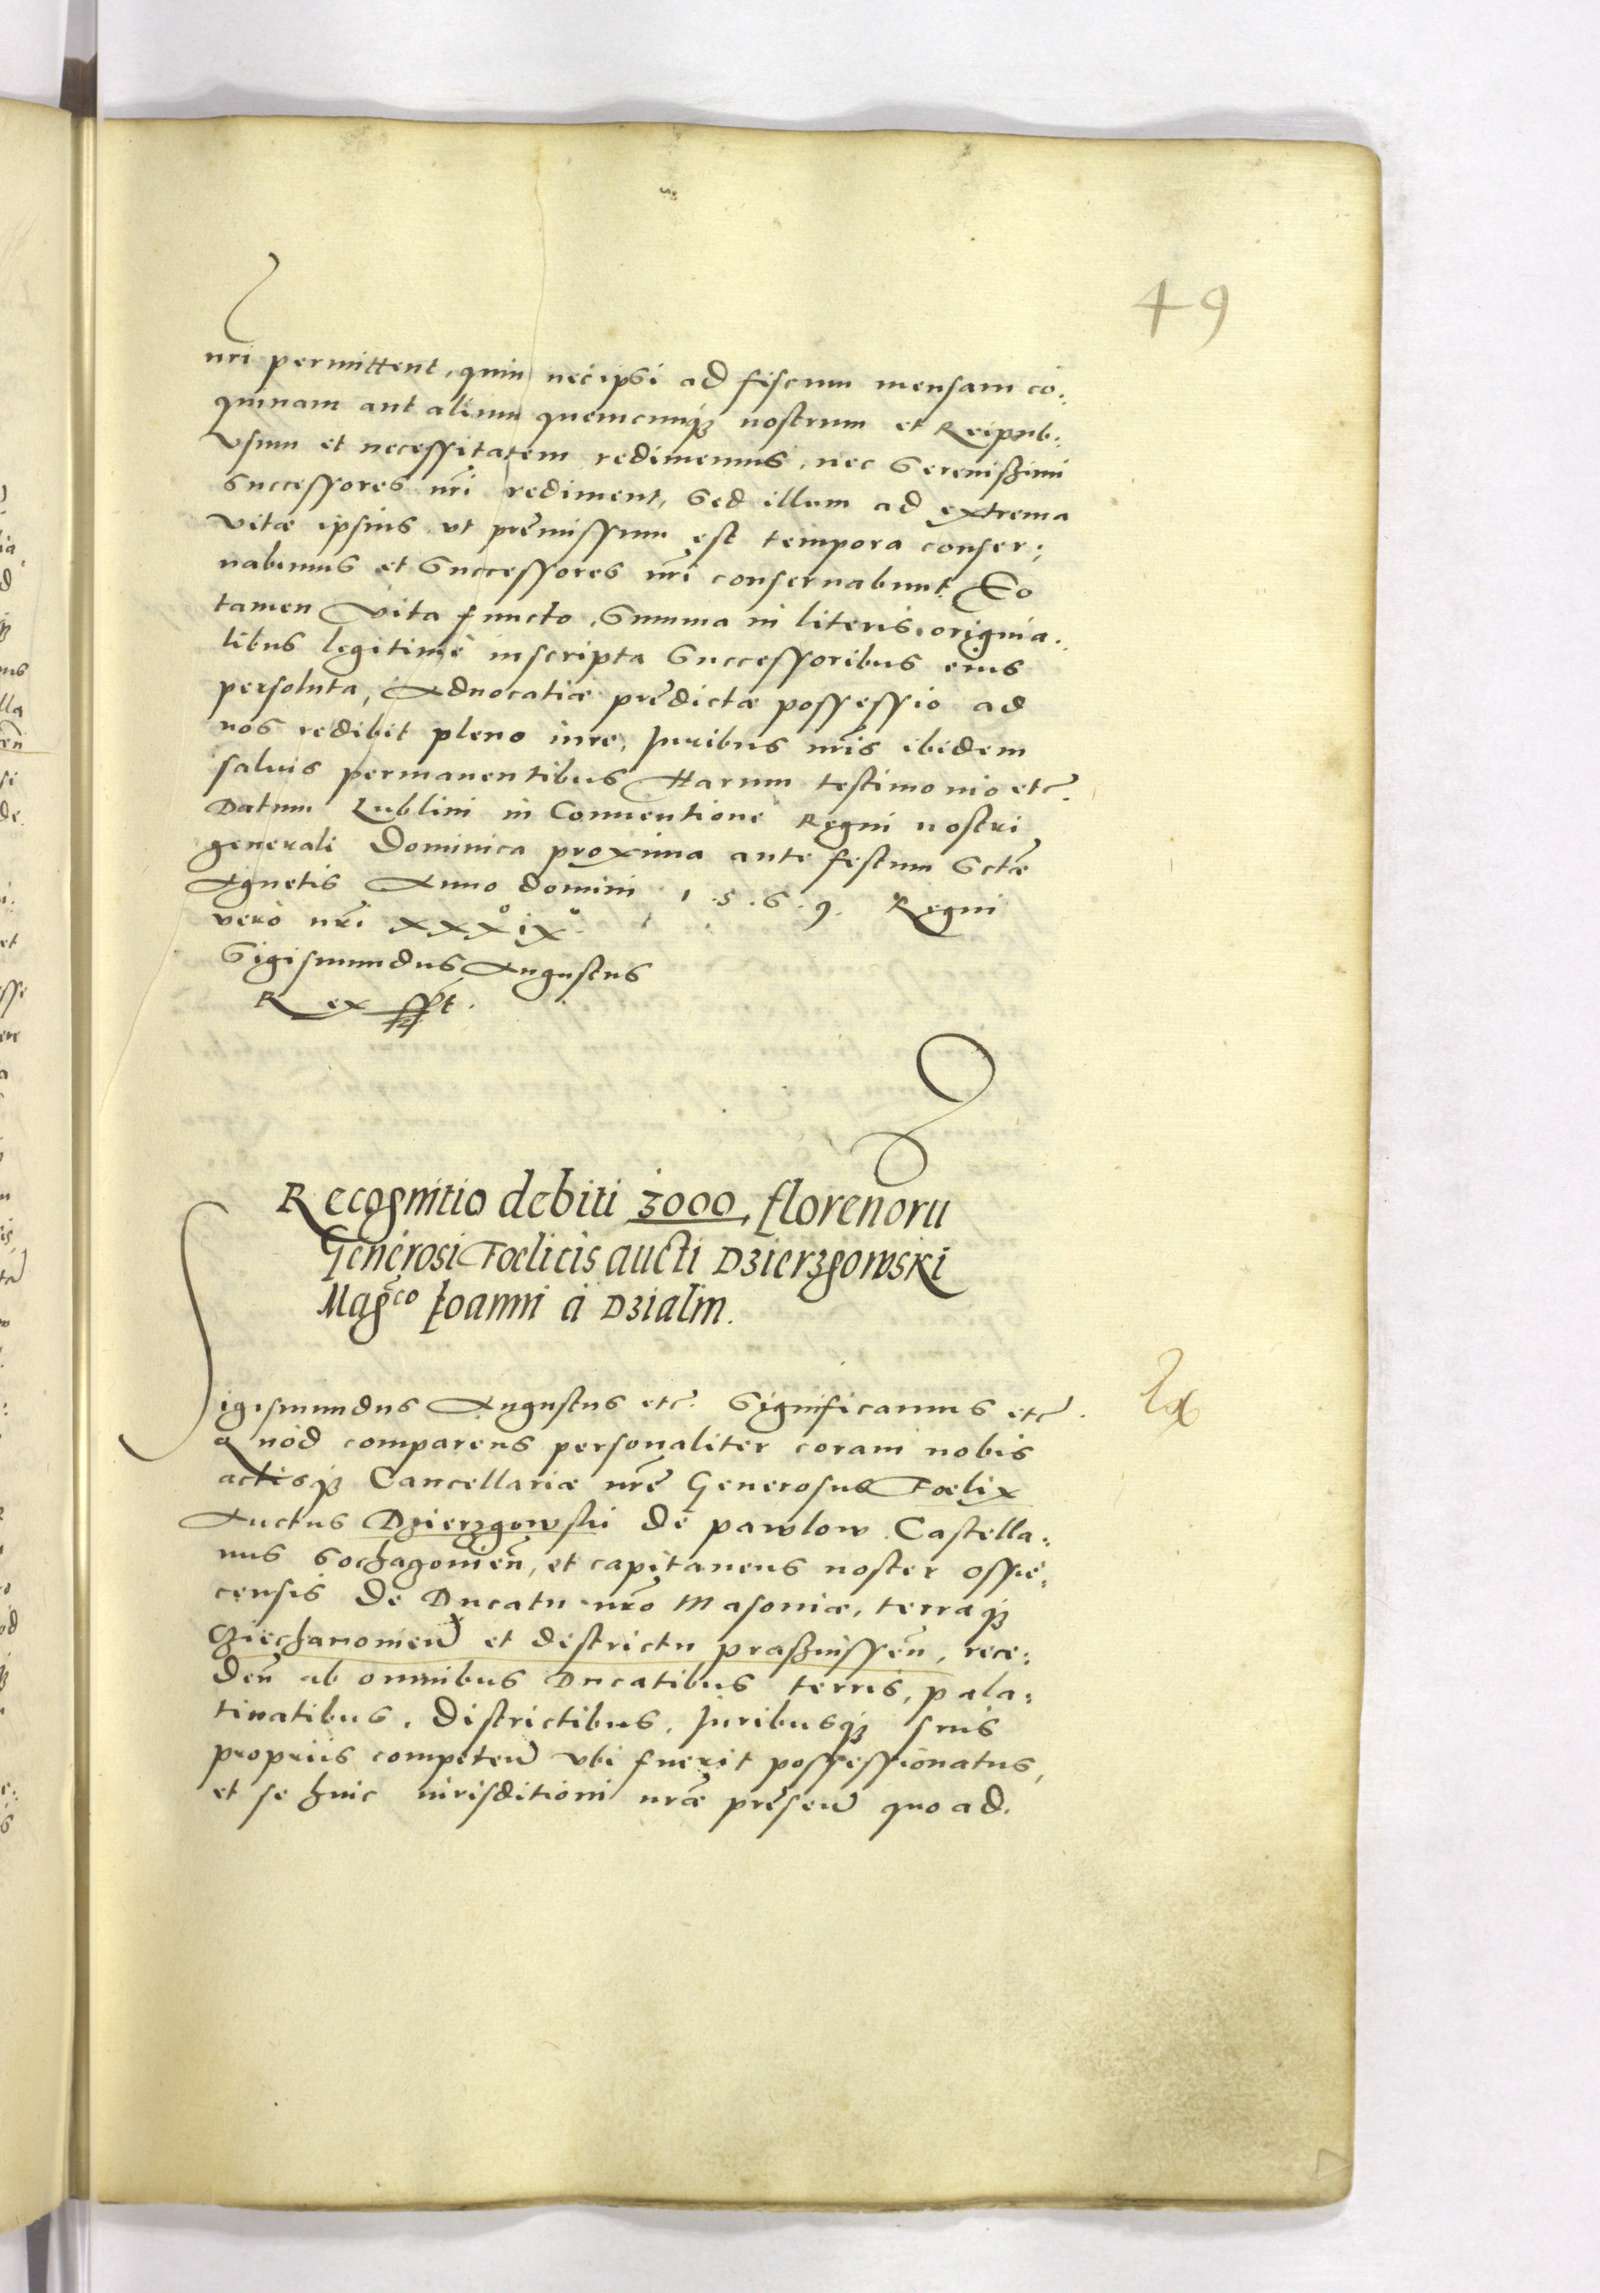 49
nr̃i permittent, quin nec ipsi ad fiscum mensam co:
quinam aut alium quemcunq3 nostrum et Reipub:
Vsum et necessitatem redimemus, nec Serenißimi
Successores nr̃i rediment, Sed illum ad extrema
vitæ ipsius vt præmissum est tempora conser:
uabimus et Successores nr̃i conseruabunt. Eo
tamen Vita functo, Summa in literis origina:
libus legitimè inscripta Successoribus eius
persoluta, Aduocatiæ prædictæ possessio ad
nos redibit pleno iure, Iuribus nr̃is ibidem
saluis permanentibus Harum testimonio etc.
Datum Lublini in Conuentione Regni nostri
generali Dominica proxima ante festum Sctæ
Agnetis Anno domini 1.5.6.9. Regni
verò nr̃i xxx°ix°
Sigismundus Augustus
Rex sspt.
Recognitio debiti 3000, florenorũ
Generosi Fœlicis aucti Dzierzgowski
Mag̃co Ioanni à Dzialin.
Sigismundus Augustus etc. Significamus etc.
Quòd comparens personaliter coram nobis
actisq3 Cancellariæ nr̃e Generosus Fœlix
Auctus Dzierzgowski de pawlow Castella:
nus Sochazouieñ, et capitaneus noster Ossie:
censis de Ducatu nr̃o Masouiæ, terraq3
Cziechanouieñ et districtu praßnisseñ, rece:
deñ ab omnibus Ducatibus terris, pala:
tinatibus, districtibus, Iuribusq3 suis
proprijs competeñ vbi fuerit possessionatus,
et se huic iurisditioni nr̃æ præseñ quo ad.